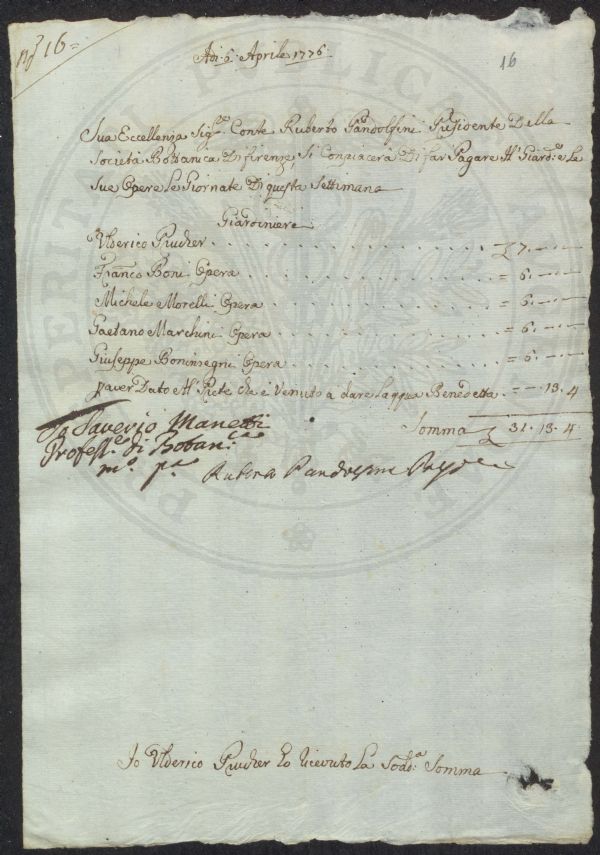 Nº 16=
Adi. 6. Aprile 1776.
16
Sua Eccellenza Sigʳᵉ Conte Ruberto Pandolfini Presidente Della
Società Bottanica Di firenze, Si Conpiacerà Di far Pagare Al Giard:ᵉ e Le
Sue Opere Le Giornate Di questa Settimana
Giardiniere
Ulderico Prucher . . . . . . £ 7. — —
Franc:º Boni Opera . . . . . . = 6. — —
Michele Morelli Opera . . . . . . = 6. — —
Gaetano Marchini Opera . . . . . . = 6. — —
Giuseppe Boninsegni Opera . . . . . . = 6. — —
p aver Dato Al Prete che è Venuto a dare Lacqua Benedetta . — — 13. 4
Somma £ 31. 13. 4
Io Saverio Manetti
Profess.ᵉ di Botani:ᶜᵃ
mº. pª.
Ruberto Pandolfini
Io Ulderico Prucher ho ricevuto La Sod:ᵃ Somma